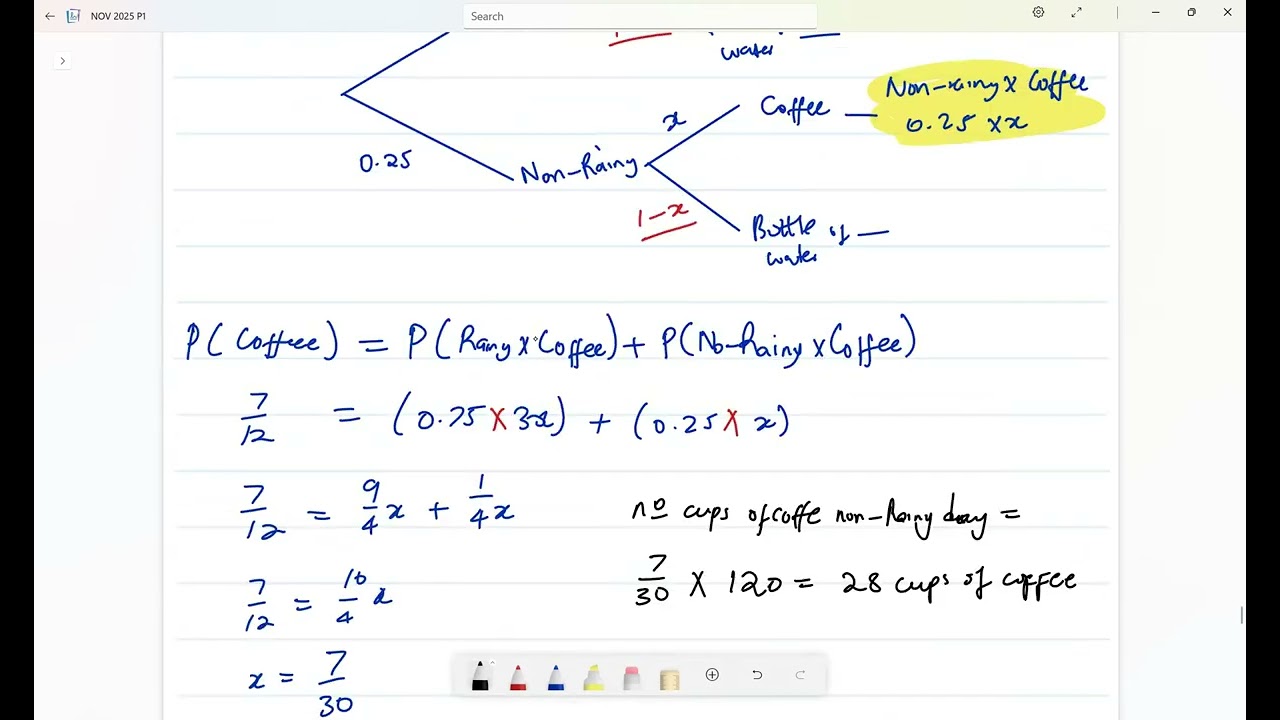 NOV 2025 P1
Search
water
Non-rainy x Coffee
0.25 x x
x
Coffee
0.25
Non-Rainy
1-x
Bottle of
water
P( Coffee ) = P( Rainy x Coffee) + P(No-Rainy x Coffee)
7/12 = (0.75 x 3x) + (0.25 x x)
7/12 = 9/4 x + 1/4 x
no cups of coffe non-Rainy day =
7/30 x 120 = 28 cups of coffee
7/12 = 10/4 x
x = 7/30